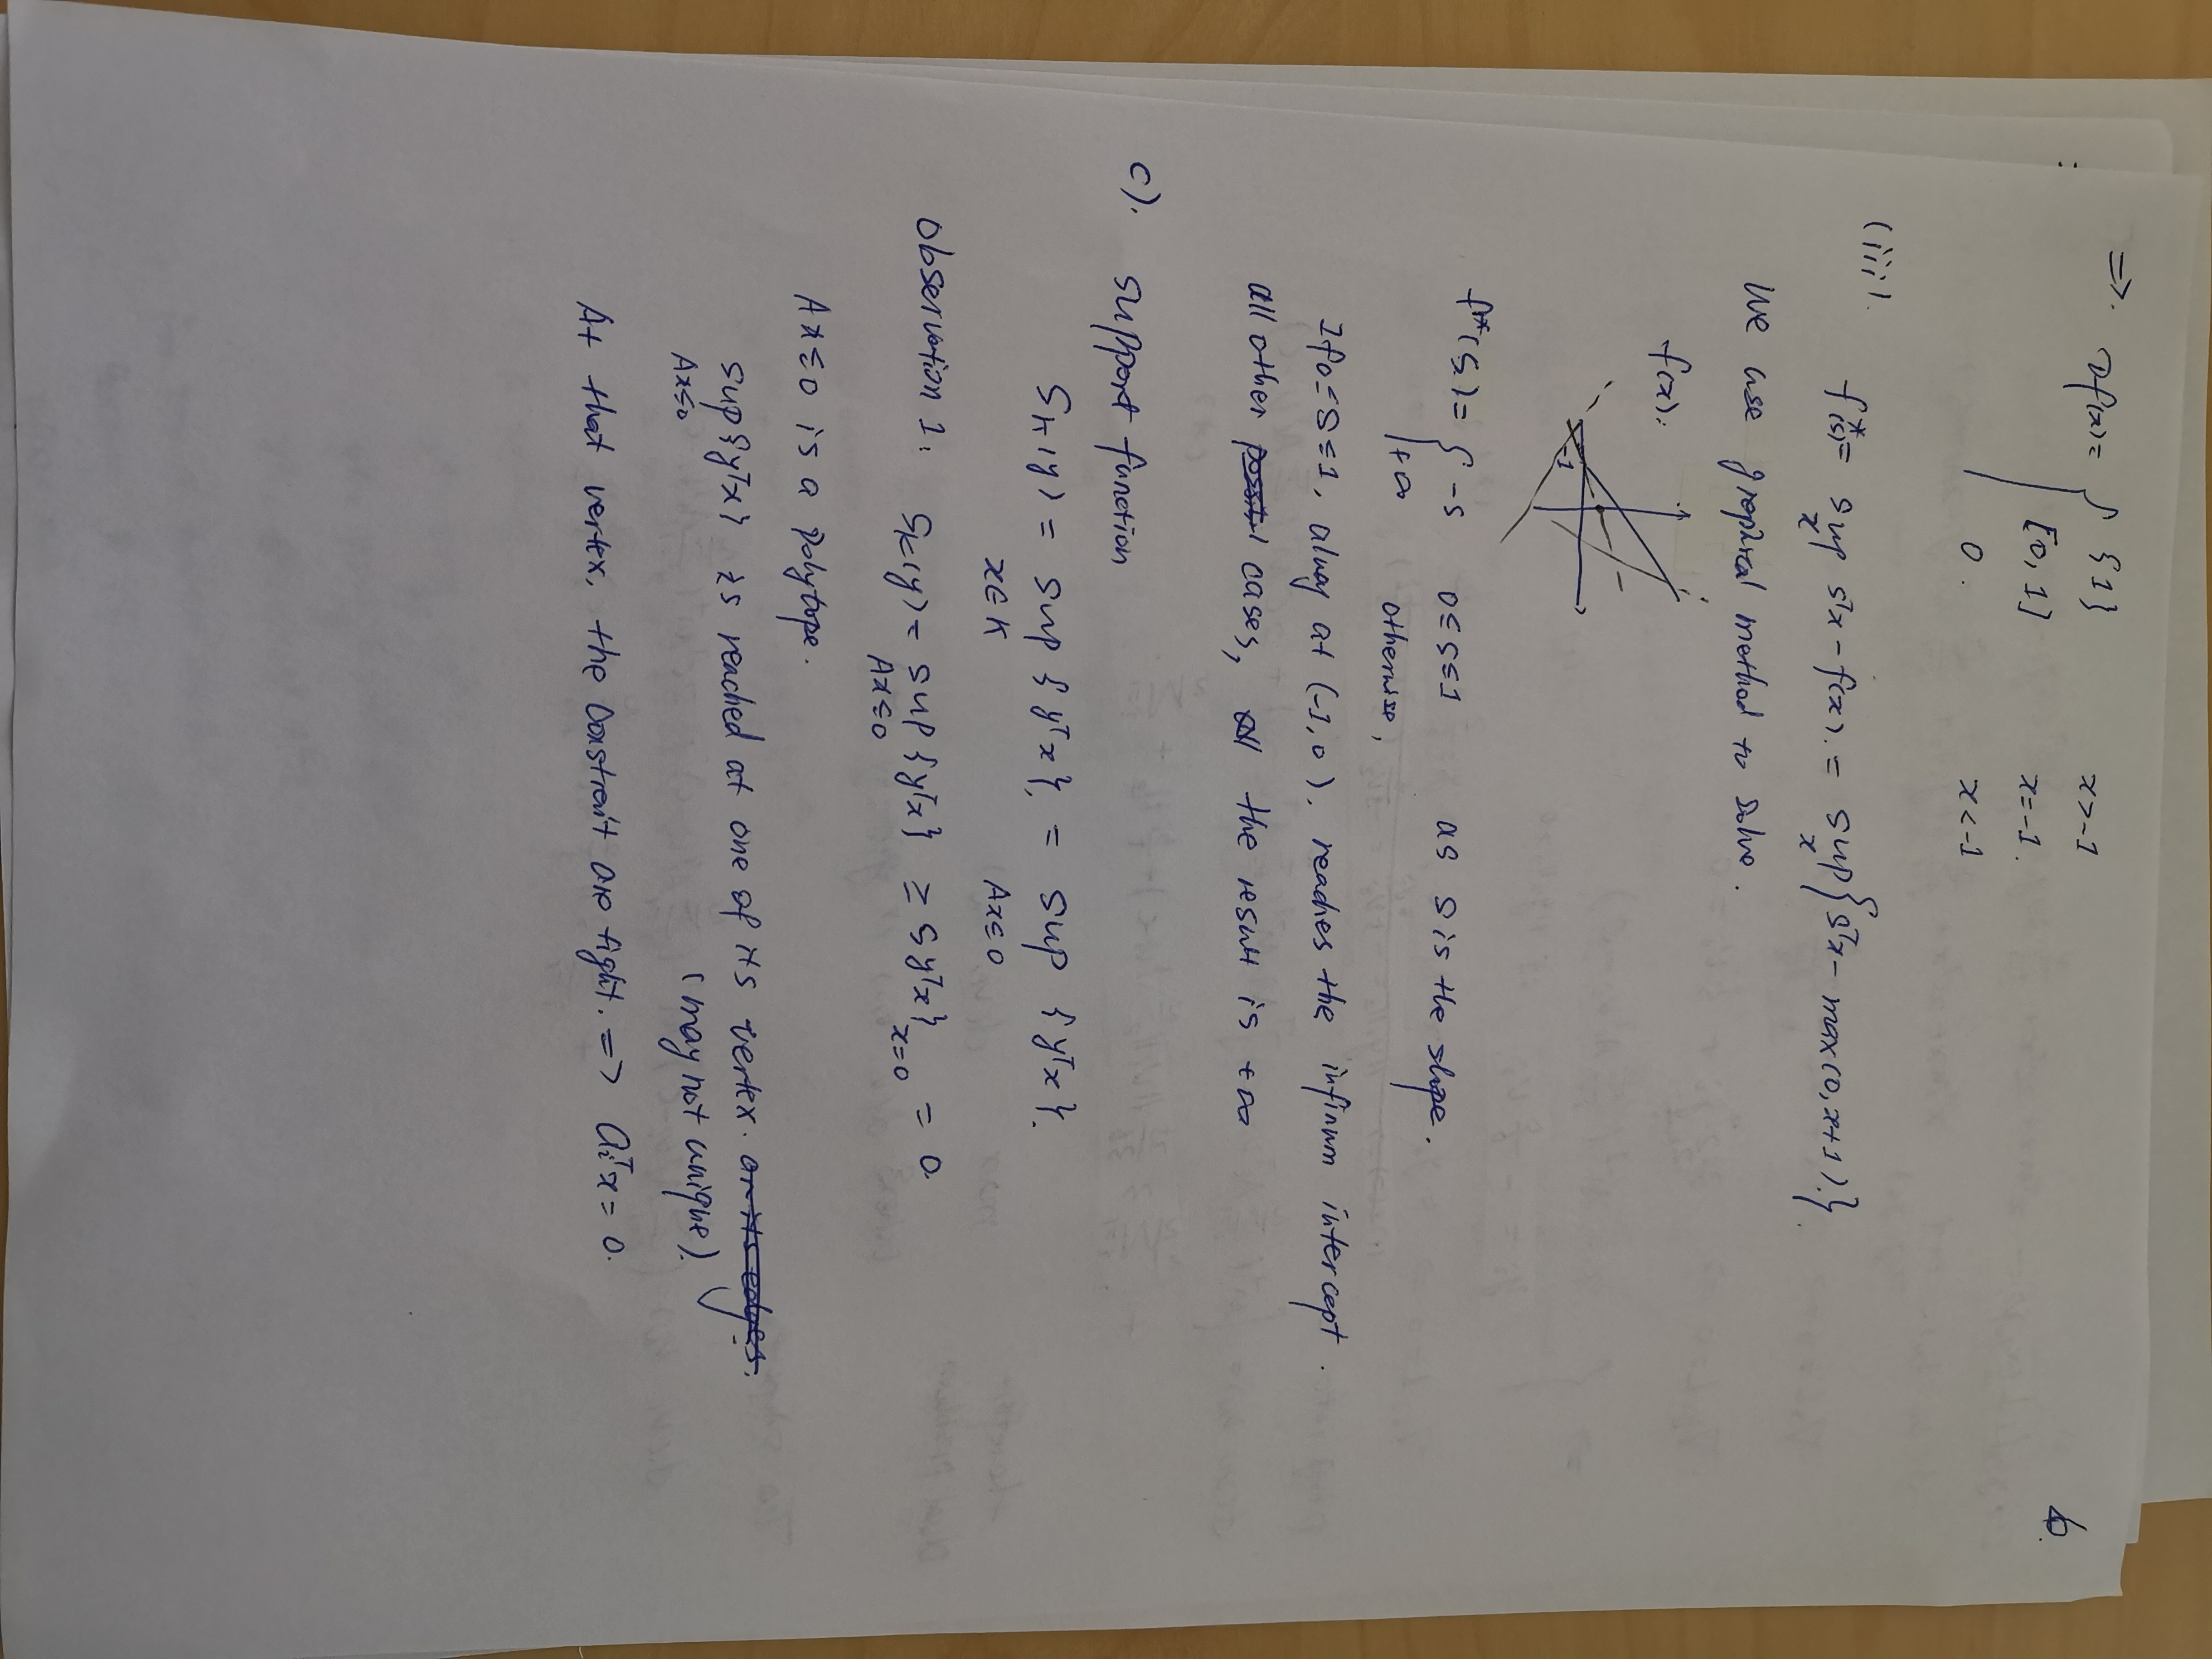 6.
=>. ∂f(x) = { {1} x>-1
[0,1] x=-1.
0. x<-1
(iii). f*(s) = sup_x sᵀx - f(x). = sup_x {sᵀx - max(0, x+1).}
We use graphical method to solve.
f(x):
-1
f*(s) = { -s 0≤s≤1 as s is the slope.
+∞ otherwise,
If 0≤s≤1, alway at (-1,0). reaches the infimum intercept.
all other cases, the result is +∞
c). Support function
S_K(y) = sup_{x∈K} {yᵀx}. = sup_{Ax≤0} {yᵀx}.
Observation 1: S_K(y) = sup_{Ax≤0} {yᵀx} ≥ {yᵀx}_{x=0} = 0.
Ax≤0 is a polytope.
sup_{Ax≤0} {yᵀx} is reached at one of its vertex. or its edges.
(may not unique).
At that vertex, the constraint are tight. => aᵢᵀx = 0.